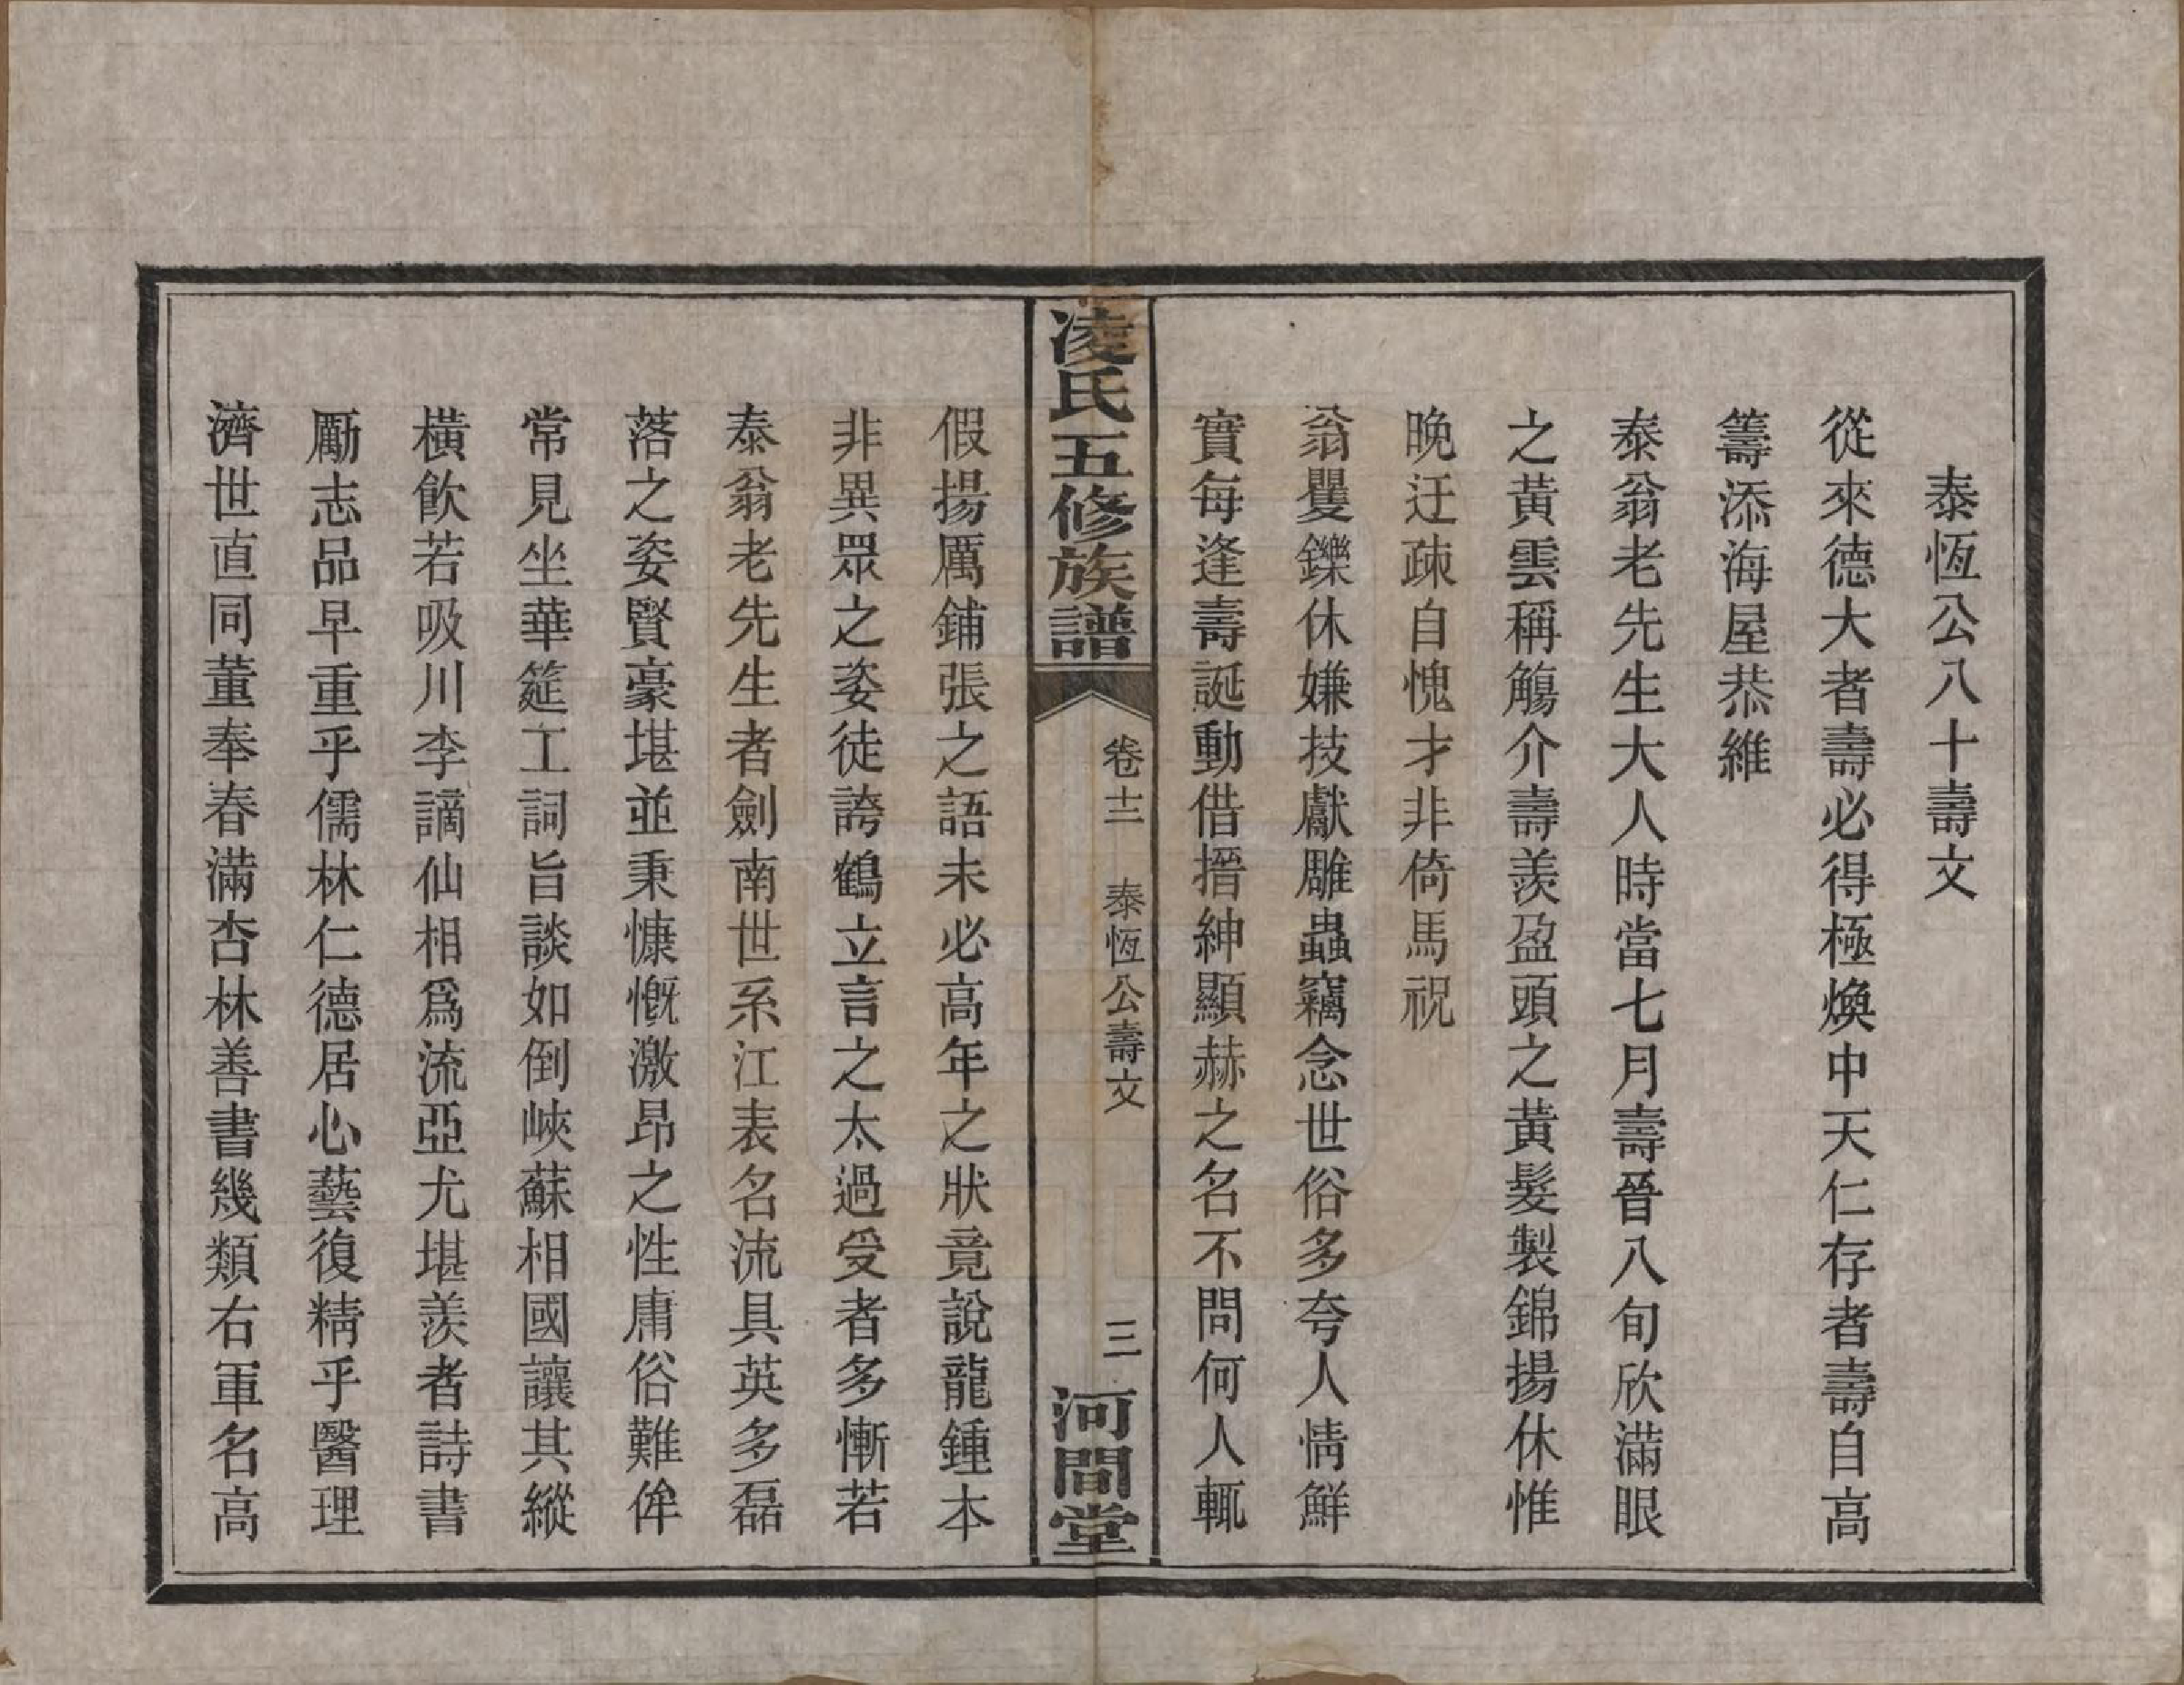 泰恆公八十壽文
從來德大者壽必得極煥中天仁存者壽自高
籌添海屋恭維
泰翁老先生大人時當七月壽晉八旬欣滿眼
之黃雲稱觴介壽羨盈頭之黃髮製錦揚休惟
晚迂疎自愧才非倚馬祝
翁矍鑠休嫌技獻雕蟲竊念世俗多夸人情鮮
實每逢壽誕動借搢紳顯赫之名不問何人輒
凌氏五修族譜
卷十二 泰恆公壽文
三
河間堂
假揚厲鋪張之語未必高年之狀竟說龍鍾本
非異眾之姿徒誇鶴立言之太過受者多慚若
泰翁老先生者劍南世系江表名流具英多磊
落之姿賢豪堪並秉慷慨激昂之性庸俗難侔
常見坐華筵工詞旨談如倒峽蘇相國讓其縱
橫飲若吸川李謫仙相爲流亞尤堪羨者詩書
勵志品早重乎儒林仁德居心藝復精乎醫理
濟世直同董奉春滿杏林善書幾類右軍名高